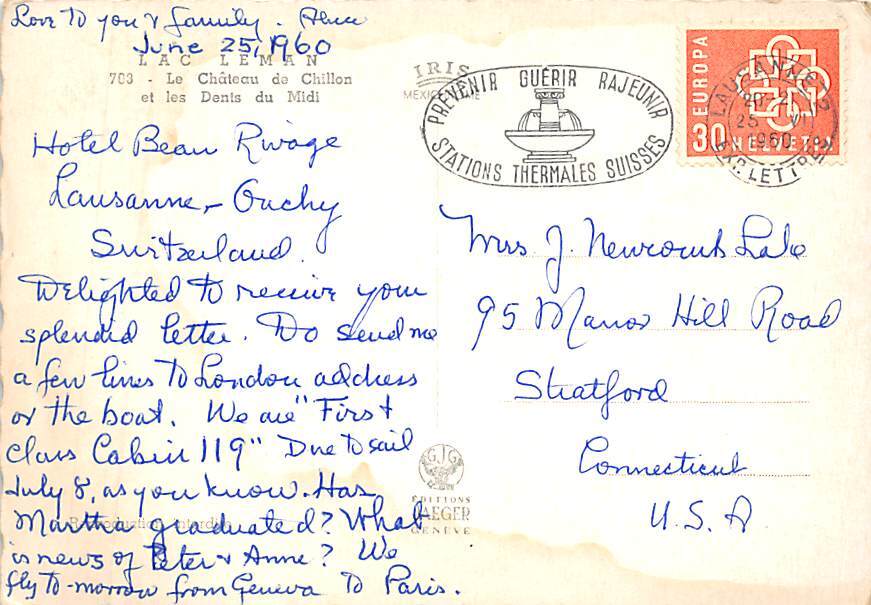 Love to you & family.
June 25, 1960
LAC LEMAN
703 - Le Château de Chillon
et les Dents du Midi
IRIS
Hotel Beau Rivage
Lausanne - Ouchy
Switzerland.
Delighted to receive your
splendid letter. Do send me
a few lines to London address
or the boat. We are "First
Class Cabin 119" Due to sail
July 8, as you know. Has
Martha graduated? What
is news of Peter & Anne? We
fly to-morrow from Geneva to Paris.
Reproduction interdite
GJG
EDITIONS
JAEGER
GENEVE
PRÉVENIR GUÉRIR RAJEUNIR
STATIONS THERMALES SUISSES
EUROPA
30 HELVETIA
LAUSANNE 2
25. VI
1960
EXP. LETTRES
Mrs J. Newcomb Lake
95 Manor Hill Road
Stratford
Connecticut
U.S.A.